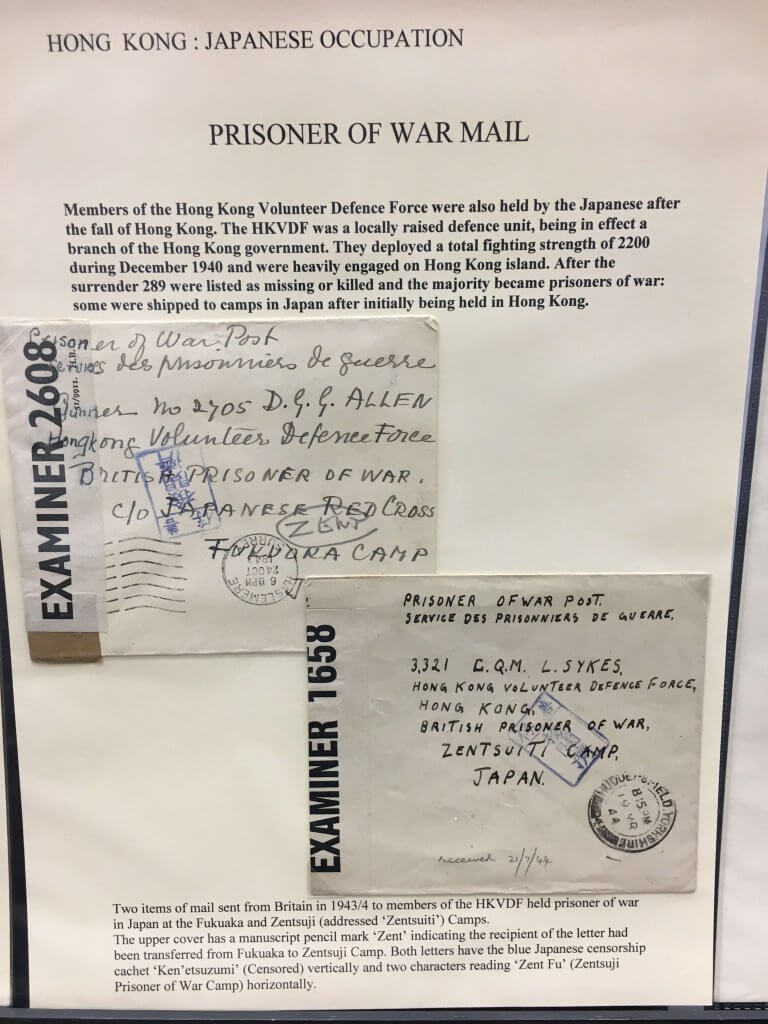 HONG KONG : JAPANESE OCCUPATION
PRISONER OF WAR MAIL
Members of the Hong Kong Volunteer Defence Force were also held by the Japanese after
the fall of Hong Kong. The HKVDF was a locally raised defence unit, being in effect a
branch of the Hong Kong government. They deployed a total fighting strength of 2200
during December 1940 and were heavily engaged on Hong Kong island. After the
surrender 289 were listed as missing or killed and the majority became prisoners of war:
some were shipped to camps in Japan after initially being held in Hong Kong.
EXAMINER 2608
Prisoner of War Post
Services des prisonniers de guerre
No 2705 D.G.G. ALLEN
Hongkong Volunteer Defence Force
BRITISH PRISONER OF WAR.
C/O JAPANESE RED CROSS
ZENT
FUKUOKA CAMP
HASLEMERE
6 15PM
24 OCT
1943
SURREY
EXAMINER 1658
PRISONER OF WAR POST.
SERVICE DES PRISONNIERS DE GUERRE,
3,321 C.Q.M. L. SYKES,
HONG KONG VOLUNTEER DEFENCE FORCE,
HONG KONG,
BRITISH PRISONER OF WAR,
ZENTSUITI CAMP,
JAPAN.
HUDDERSFIELD YORKSHIRE
8 15PM
44
received 21/7/44
Two items of mail sent from Britain in 1943/4 to members of the HKVDF held prisoner of war
in Japan at the Fukuaka and Zentsuji (addressed ‘Zentsuiti’) Camps.
The upper cover has a manuscript pencil mark ‘Zent’ indicating the recipient of the letter had
been transferred from Fukuaka to Zentsuji Camp. Both letters have the blue Japanese censorship
cachet ‘Ken’etsuzumi’ (Censored) vertically and two characters reading ‘Zent Fu’ (Zentsuji
Prisoner of War Camp) horizontally.